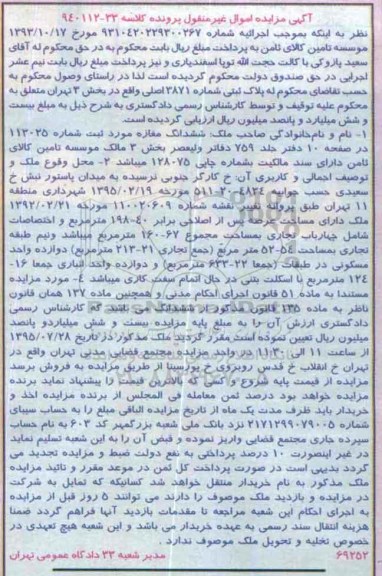 آگهی مزایده اموال غیرمنقول پرونده کلاسه ۳۳-۹۴۰۱۱۲
نظر به اینکه بموجب اجرائیه شماره ۹۳۱۰۴۲۰۲۲۹۳۰۰۲۶۷ مورخ ۱۳۹۳/۱۰/۱۷
موسسه تامین کالای ثامن به پرداخت مبلغ ریال بابت محکوم به در حق محکوم له آقای
سعید پازوکی با کالت حجت الله تویا اسفندیاری و نیز پرداخت مبلغ ریال بابت نیم عشر
اجرایی در حق صندوق دولت محکوم گردیده است لذا در راستای وصول محکوم به
حسب تقاضای محکوم له پلاک ثبتی شماره ۳۸۷۱ اصلی واقع در بخش ۳ تهران متعلق به
محکوم علیه توقیف و توسط کارشناس رسمی دادگستری به شرح ذیل به مبلغ بیست
و شش میلیارد و پانصد میلیون ریال ارزیابی گردیده است.
۱- نام و نام‌خانوادگی صاحب ملک: ششدانگ مغازه مورد ثبت شماره ۱۱۳۰۲۵
در صفحه ۱۰ دفتر جلد ۷۵۹ دفاتر ولیعصر بخش ۳ مالک موسسه تامین کالای
ثامن دارای سند مالکیت بشماره چاپی ۱۲۸۰۷۵ میباشد ۲- محل وقوع ملک و
توصیف اجمالی و کاربری آن: خ کارگر جنوبی نرسیده به میدان پاستور نبش خ
سعیدی حسب جوابیه ۵۱۱۰۲۰۴۸۲۴ مورخه ۱۳۹۵/۰۲/۱۹ شهرداری منطقه
۱۱ تهران طبق پروانه تغییر نقشه شماره ۱۱۰۰۲۰۶۰۹ مورخه ۱۳۹۲/۰۲/۲۱
ملک دارای مساحت عرصه پس از اصلاحی برابر ۱۹۸.۴۰ مترمربع و اختصاصات
شامل چهارباب تجاری بمساحت مجموع ۱۶۰.۶۷ مترمربع میباشد ونیم طبقه
تجاری بمساحت ۵۲.۵۴ متر مربع (جمع تجاری ۲۱۳.۲۱ مترمربع) دوازده واحد
مسکونی در طبقات (جمعا ۶۳۳.۲۲ مترمربع) و دوازده واحد انباری جمعا ۱۶.
۱۲۴ مترمربع با اسکلت بتنی در حال اتمام سفت کاری میباشد ۴- مورد مزایده
مستندا به ماده ۵۱ قانون اجرای احکام مدنی و همچنین ماده ۱۳۷ همان قانون
ناظر به ماده ۱۳۵ قانون مذکور از ششدانگ می باشد که کارشناس رسمی
دادگستری ارزش آن را به مبلغ پایه مزایده بیست و شش میلیاردو پانصد
میلیون ریال تعیین نموده است مقرر گردید ملک مذکور در تاریخ ۱۳۹۵/۰۷/۲۸
از ساعت ۱۱ الی ۱۱:۳۰ در واحد مزایده مجتمع قضایی مدنی تهران واقع در
تهران خ انقلاب خ قدس روبروی خ پورسینا از طریق مزایده به فروش برسد
مزایده از قیمت پایه شروع و کسی که بالاترین قیمت را پیشنهاد نماید برنده
مزایده خواهد بود درصد ثمن معامله فی المجلس از برنده مزایده اخذ و
خریدار باید ظرف مدت یک ماه از تاریخ مزایده الباقی مبلغ را به حساب سیبای
شماره ۲۱۷۱۲۹۹۰۷۹۰۰۵ نزد بانک ملی شعبه بزرگمهر کد ۶۰۳ به نام حساب
سپرده جاری مجتمع قضایی واریز نموده و قبض آن را به این شعبه تسلیم نماید
در غیر اینصورت ۱۰ درصد پرداختی به نفع دولت ضبط و مزایده تجدید می
گردد بدیهی است در صورت پرداخت کل ثمن در موعد مقرر و تائید مزایده
ملک مذکور به نام خریدار منتقل خواهد شد کسانیکه که تمایل به شرکت
در مزایده و بازدید ملک موصوف را دارند می توانند ۵ روز قبل از مزایده
به اجرای احکام این شعبه مراجعه تا مقدمات بازدید آنها فراهم گردد ضمنا
هزینه انتقال سند رسمی به عهده خریدار می باشد و این شعبه هیچ تعهدی در
خصوص تخلیه و تحویل ملک موصوف ندارد .
۶۹۲۵۲ مدیر شعبه ۳۳ دادگاه عمومی تهران